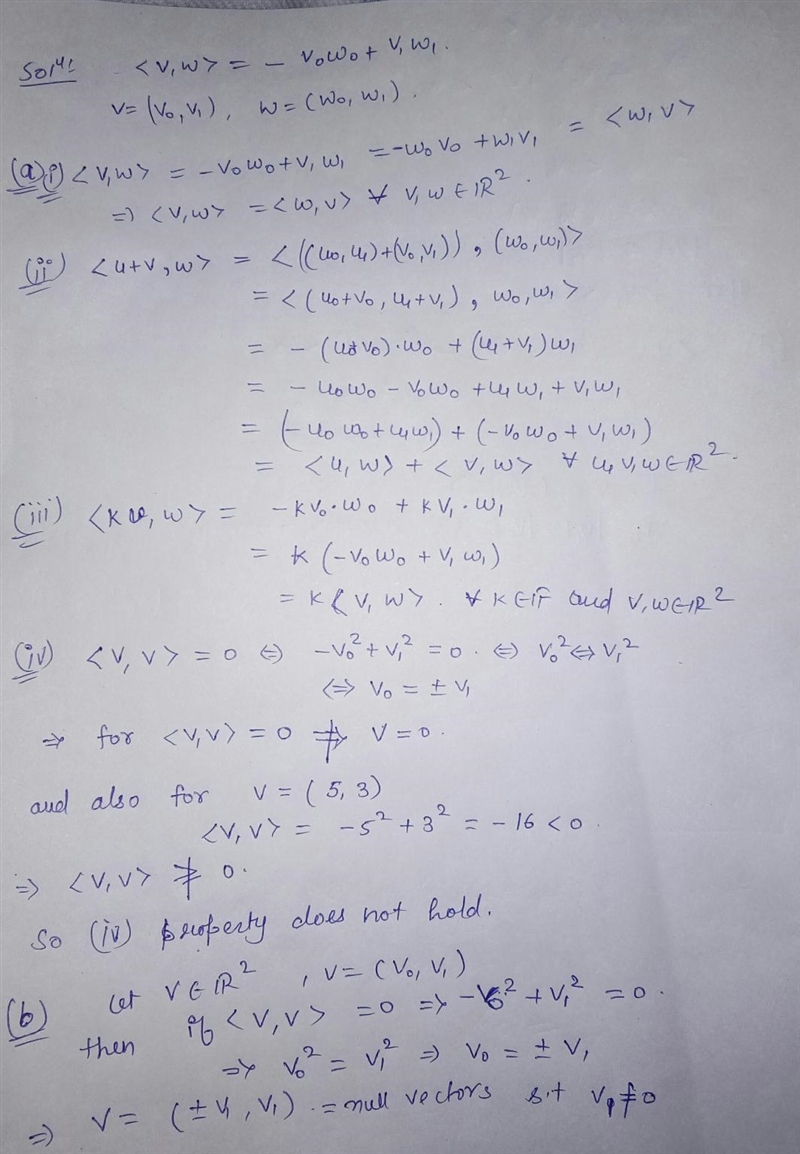 Solⁿ: <v,w> = - v₀w₀ + v₁w₁.
v = (v₀,v₁), w = (w₀, w₁).
(a) i) <v,w> = -v₀w₀+v₁w₁ = -w₀v₀ + w₁v₁ = <w,v>
=> <v,w> = <w,v> ∀ v,w ∈ ℝ².
(ii) <u+v,w> = <((u₀,u₁)+(v₀,v₁)), (w₀,w₁)>
= <(u₀+v₀, u₁+v₁), w₀,w₁>
= - (u₀+v₀)·w₀ + (u₁+v₁)w₁
= - u₀w₀ - v₀w₀ + u₁w₁ + v₁w₁
= (-u₀w₀+u₁w₁) + (-v₀w₀ + v₁w₁)
= <u,w> + <v,w> ∀ u,v,w ∈ ℝ².
(iii) <kv,w> = -kv₀·w₀ + kv₁·w₁
= k(-v₀w₀ + v₁w₁)
= k<v,w>. ∀ k∈F and v,w∈ℝ²
(iv) <v,v> = 0 ⇔ -v₀²+v₁² = 0. ⇔ v₀² ⇔ v₁²
⇔ v₀ = ± v₁
⇒ for <v,v> = 0 ⇏ v = 0.
and also for v = (5,3)
<v,v> = -5² + 3² = -16 < 0.
=> <v,v> ≱ 0.
So (iv) property does not hold.
(b) Let v∈ℝ², v = (v₀,v₁)
then if <v,v> = 0 => -v₀² + v₁² = 0.
=> v₀² = v₁² => v₀ = ± v₁
=> v = (±v₁, v₁). = null vectors s.t v₁≠0